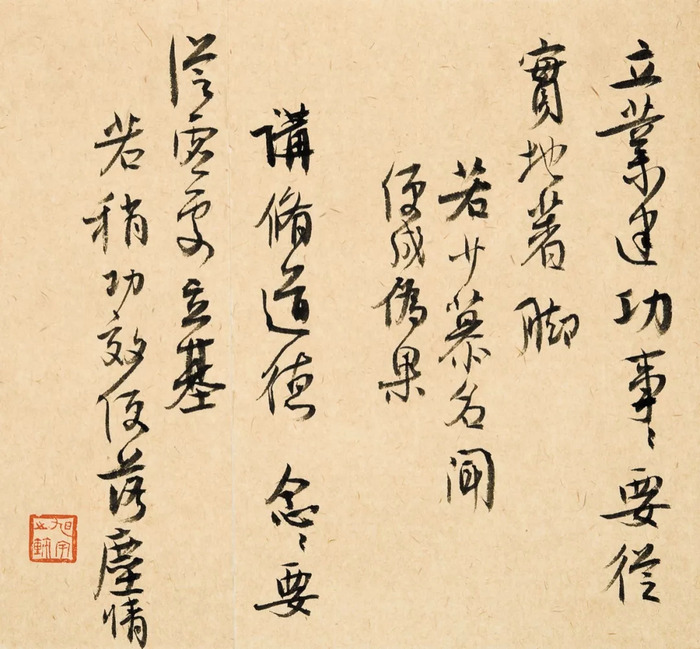 立業建功事〻要從
實地著脚
若少慕名聞
便成偽果
講脩道德 念〻要
從虛處立基
若稍功效便落塵情